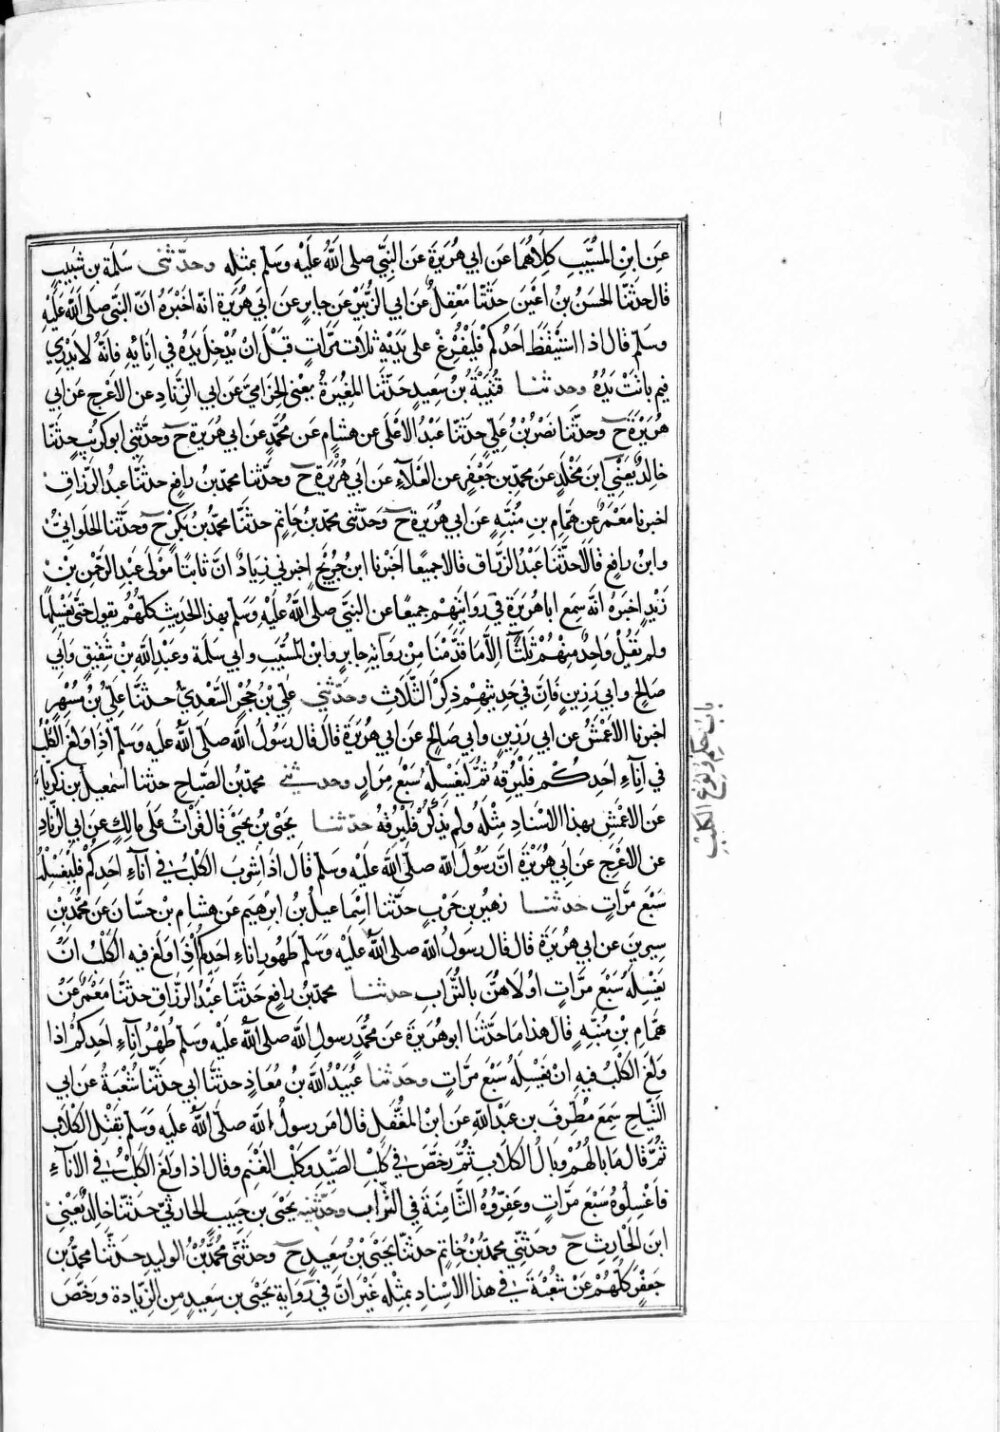 عَن ابنِ المسَيَّبِ كِلَاهُمَا عَن ابي هُرَيرَةَ عَن النَّبِيّ صلى اللّٰهُ عَلَيْهِ وسَلّم بمثلِهِ وحَدّثنى سَلَمَة بن شبيبٍ
قال حَدثنَا الحَسَنُ بنُ اَعْيَنَ حَدثَنَا مَعْقِلٌ عَن ابي الزُّبَيْرِ عَن جابرٍ عَن ابي هُرَيرَة انّه اَخبَرَهُ اَنّ النبّى صَلى اللّٰه عَلَيْهِ
وسَلّم قال اذا استَيْقَظَ اَحَدُكُمْ فَلْيُفْرِغ عَلى يَدَيْهِ ثلاث مَرّاتٍ قبْلَ اَنْ يُدْخِلَ يَدَهُ في اِنَائِهِ فَانّهُ لا يَدْرِي
فيم باتَتْ يَدُهُ وحدثنا قُتَيبَةُ بنُ سَعِيدٍ حَدّثَنا المُغِيرَةُ يعني الحِزامِيَّ عَن ابي الزّنادِ عن الاَعرَج عَن ابي
هُرَيرَةَ ح وحَدّثَنَا نَصْرُ بْنُ عَلِيّ حَدّثَنا عَبْدُ الاَعْلَى عَن هشامٍ عَن محُمّدٍ عَن ابي هُرَيرَة ح وحَدّثنى ابو كرَيْبٍ حدثَنَا
خالِدٌ يَعْنِي ابنَ مَخْلَدٍ عَن محمّدِ بن جَعْفَرٍ عن العَلَآءِ عَن ابي هُرَيرَة ح وحَدّثنا محمّد بن رافعٍ حدثنَا عبدُ الرزاق
اخبرنا مَعْمَرٌ عن همّامِ بنِ مُنَبّهٍ عَن ابي هريرة ح وحَدّثنى محمّد بن حَاتِم حدثَنَا محمّد بن بَكْرٍ ح وحَدّثنا الحلوانِيُّ
وابن رافعٍ قالا حَدّثَنَا عَبْدُ الرزّاق قالا جميعًا اَخبَرنا ابنُ جُرَيْجٍ اخبرني زِيَادٌ انّ ثابتًا مَولى عبدِ الرّحمنِ بن
زَيدٍ اخبَرَهُ انّه سَمِع ابا هُرَيرَةَ في رِوايَتهم جميعًا عن النبيّ صلى اللّٰه عَليْهِ وسَلّم بهذا الحَدِيثِ كلّهُمْ يقول حتى يَغْسِلهَا
ولم يَقُلْ وَاحِدٌ منهُمْ ثَلثًا اِلّا مَا قدّمْنَا مِن روايَةِ جابرٍ وابن المسَيّبِ وابي سلَمَة وعبدِ اللّٰهِ بن شقيقٍ وابي
صَالِحٍ وابي رَزينٍ فانّ في حَديثِهمْ ذِكْرُ الثّلاثِ وحَدّثَني عَلِيّ بْنُ حُجْرٍ السّعْدِيّ حدثنَا عَلِيّ بن مُسْهِرٍ
اخبرنا الاَعْمَشُ عن ابي رَزينٍ وابي صالحٍ عن ابي هريرة قال قال رَسُولُ اللّٰه صلى اللّٰه عليه وسَلّم اذا وَلَغَ الكلْبُ
في اِناءِ احدِكُمْ فَلْيُرِقْهُ ثمّ لْيَغْسِلْهُ سَبْع مِرَارٍ وحدثني محمّد بن الصّباحِ حدثنا اسمٰعيل بن زكرِيّاءَ
عَن الاَعْمَشِ بهذا الاسنادِ مِثْلَهُ ولم يَذْكُرْ فَلْيُرِقْهُ حدّثنا يحيى بن يحيى قال قَرَأتُ عَلى مالِكٍ عن ابي الزّنادِ
عن الاعرج عن ابي هُرَيْرَةَ انّ رَسُولَ اللّٰه صلى اللّٰه عليه وسَلّم قال اذا شربَ الكلْبُ في انآءِ احدِكُمْ فَلْيَغْسِلْهُ
سَبْع مَرّاتٍ حدثنا زهَيْر بن حَرْبٍ حدّثنا اِسْماعيل بن ابرهِيمَ عن هشامِ بن حسّان عن محمّد بن
سيرين عن ابي هريرة قال قال رسول اللّٰه صلى اللّٰه عليْهِ وسَلّم طَهُور اِناءِ احدِكُمْ اِذَا وَلَغَ فيه الكلْبُ انْ
يَغْسِلَهُ سَبْع مَرّاتٍ اُولَاهُنَّ بالتُّرابِ حدثنا محمّد بن رافعٍ حَدثنَا عَبْدُ الرزّاقِ حَدثنَا مَعْمَرٌ عَنْ
همّامِ بن مُنَبّهٍ قال هذا ما حَدّثنَا ابو هُرَيرَةَ عَن محُمّدٍ رسولِ اللّٰه صلى اللّٰه عَليْهِ وسَلّم طُهْرُ اِنآءِ احَدِكمْ اذا
وَلَغَ الكَلْبُ فيهِ انْ يغْسِلَهُ سَبْعَ مَرّاتٍ وحَدثنا عُبَيْدُ اللّٰه بنُ مُعَاذٍ حدثنَا ابي حَدّثنا شُعْبَةُ عَن ابي
التيّاحِ سَمِعَ مُطَرِّفَ بن عَبدِ اللّٰهِ عَن ابن المغَفّلِ قال امَر رسولُ اللّٰه صلى اللّٰه عليه وسَلّم بقَتْلِ الكلابِ
ثمّ قال مَا بالهُمْ وبالُ الكلابِ ثمَّ رخّصَ في كَلْبِ الصَّيْدِ وكلْبِ الغَنَمِ وقال اذا ولَغَ الكلْبُ في الانآءِ
فاغسِلوهُ سَبْعَ مَرّاتٍ وعَفِّرُوهُ الثّامِنَةَ فِي التّرابِ وحَدثنيه يَحْيَى بن حَبيبٍ الحارِثيّ حَدثنا خالدٌ يَعْني
ابن الحَارِثِ ح وحَدثني محمّد بن حَاتِمٍ حدثنا يَحْيى بن سَعِيدٍ ح وحَدثنى محُمّدُ بْنُ الوليدِ حدثنَا محمّد بن
جَعْفَرٍ كلّهُمْ عَن شُعْبَةَ في هذا الاسْنادِ بمثْلِهِ غَيْرَ انّ في رِوَايَةِ يَحْيى بن سَعِيدٍ مِن الزِّيادة ورَخّصَ
باب حكم ولوغ الكلب